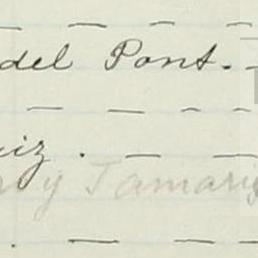 del Pont. —
— — — -
uiz. — —
y Tamari
. — — —